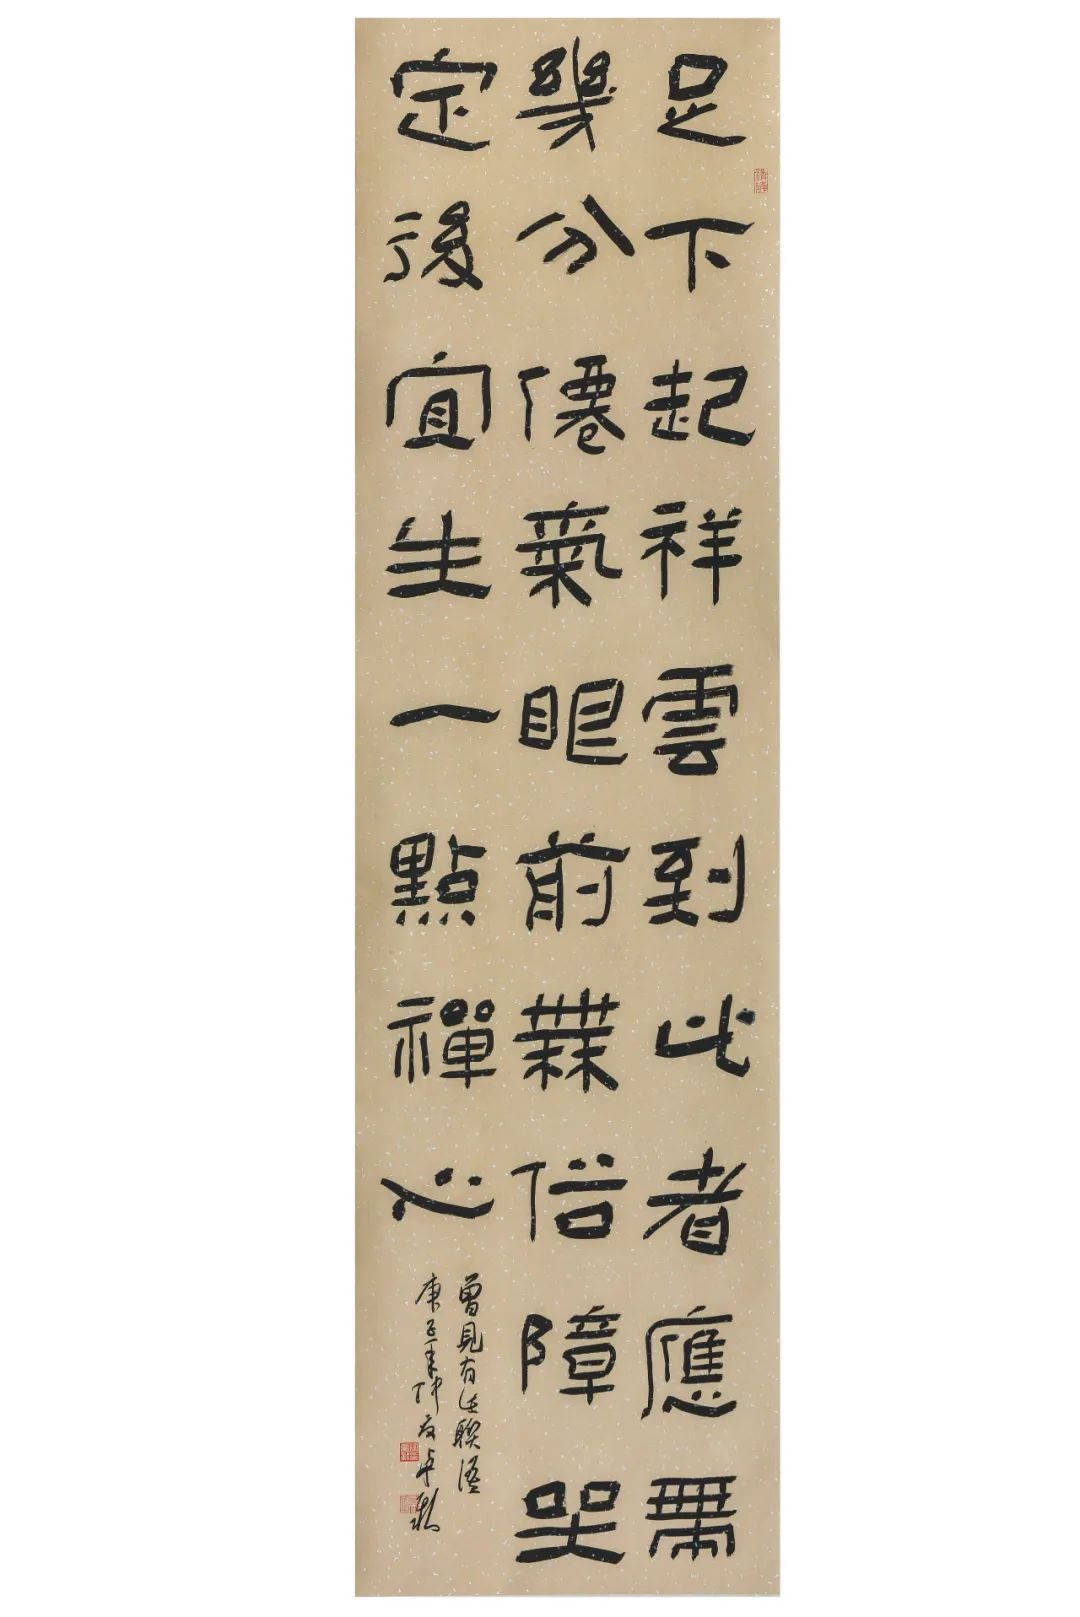 足下起祥雲到此者應帶
幾分僊氣眼前無俗障坐
定後宜生一點禪心
曾見有聯語
庚子年仲夏卓